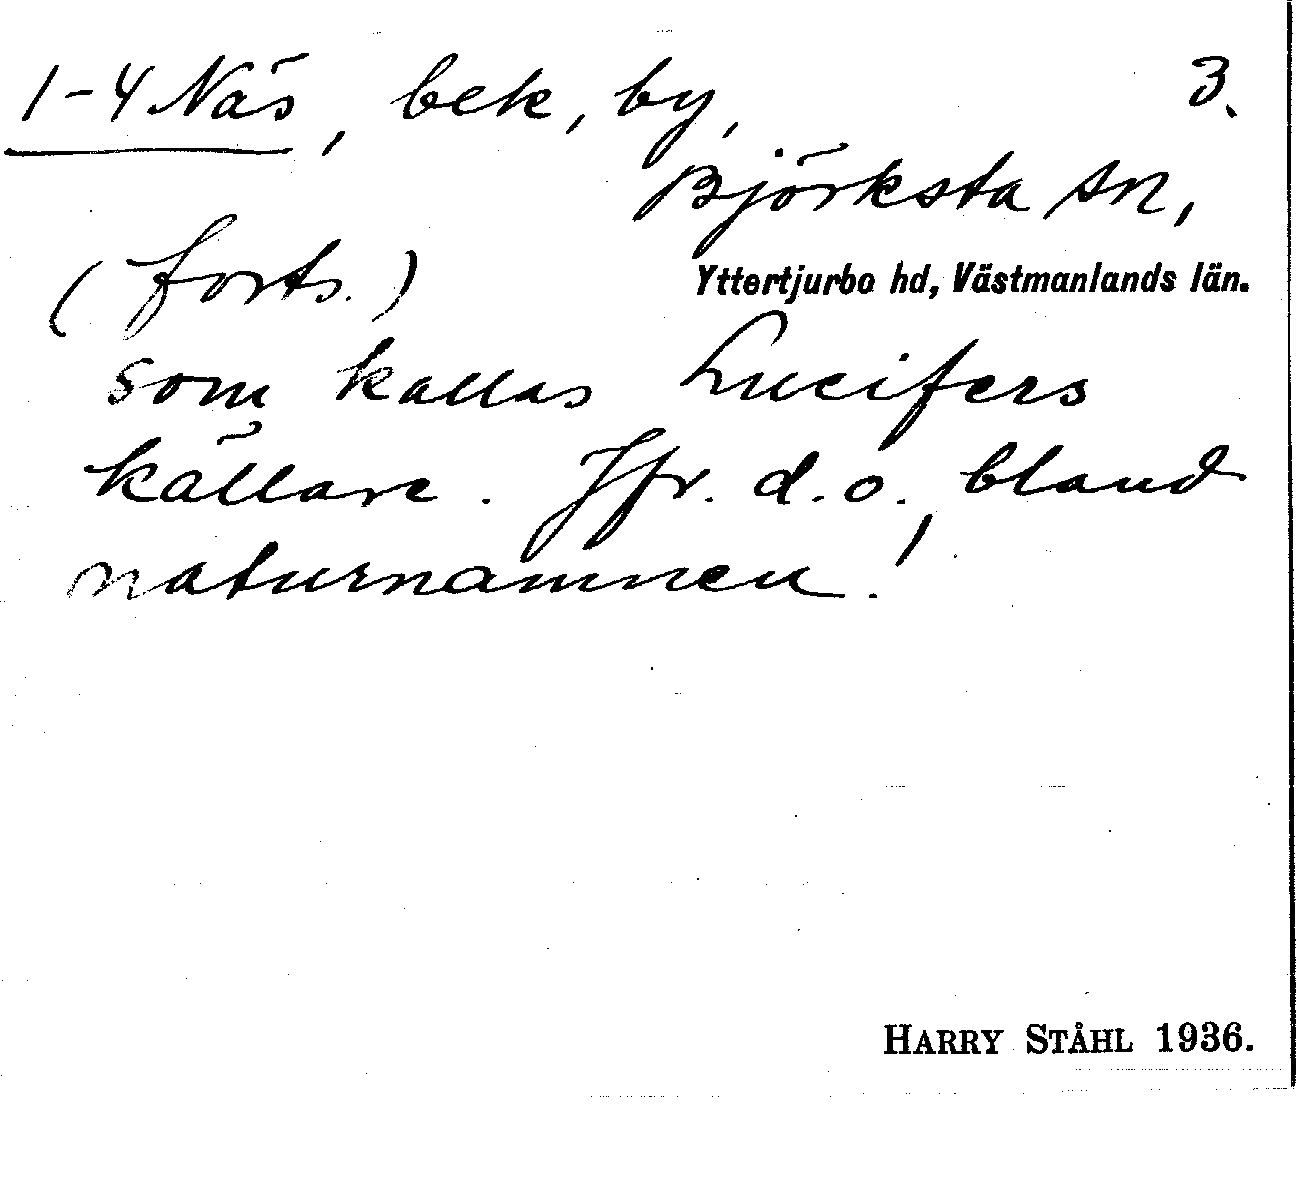 1-4 Näs, bek, by, 3.
Björksta sn,
(forts.) Yttertjurbo hd, Västmanlands län.
som kallas Lucifers
källare. Jfr. d.o., bland
naturnamnen!
HARRY STÅHL 1936.